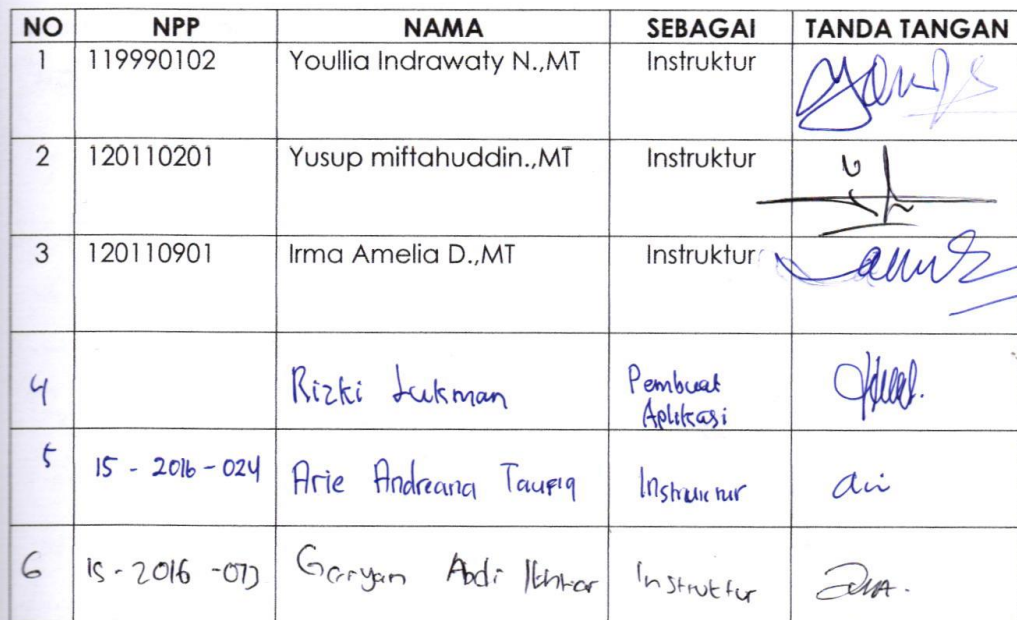 NO NPP NAMA SEBAGAI TANDA TANGAN
1 119990102 Youllia Indrawaty N.,MT Instruktur
2 120110201 Yusup miftahuddin.,MT Instruktur
3 120110901 Irma Amelia D.,MT Instruktur
4 Rizki Lukman Pembuat
Aplikasi
5 15 - 2016 - 024 Arie Andreana Taufiq Instruktur
6 15 - 2016 - 073 Garryan Abdi Instruktur